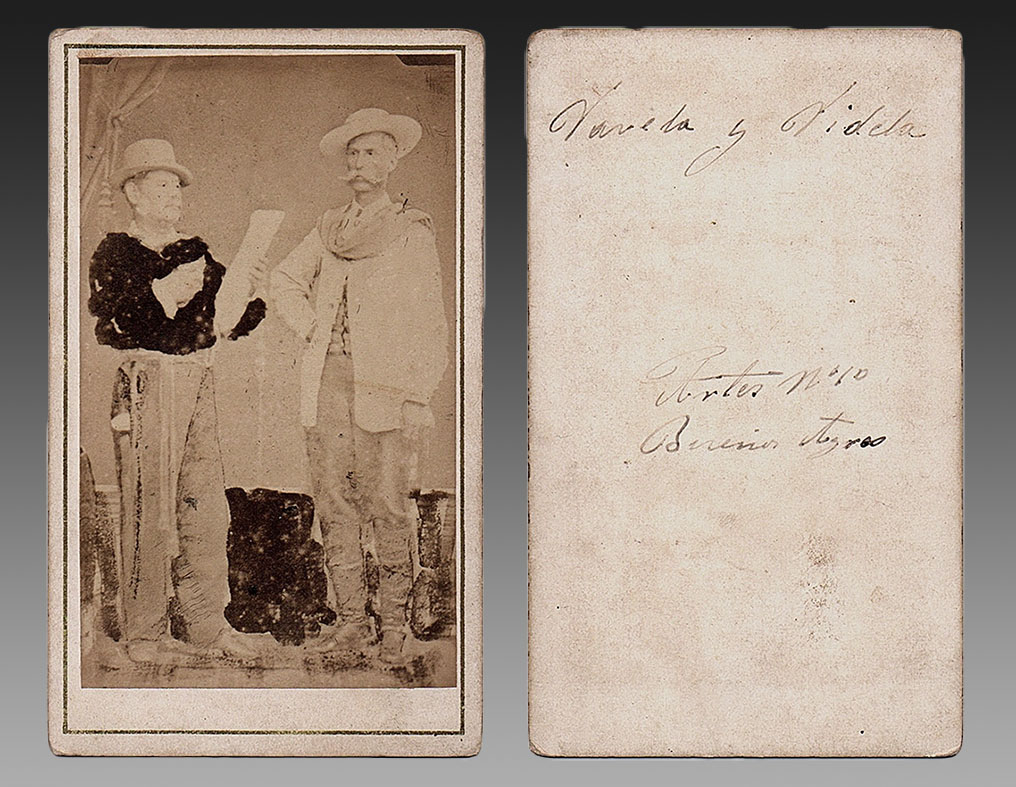 Varela y Videla
Artes Nº 10
Buenos Ayres